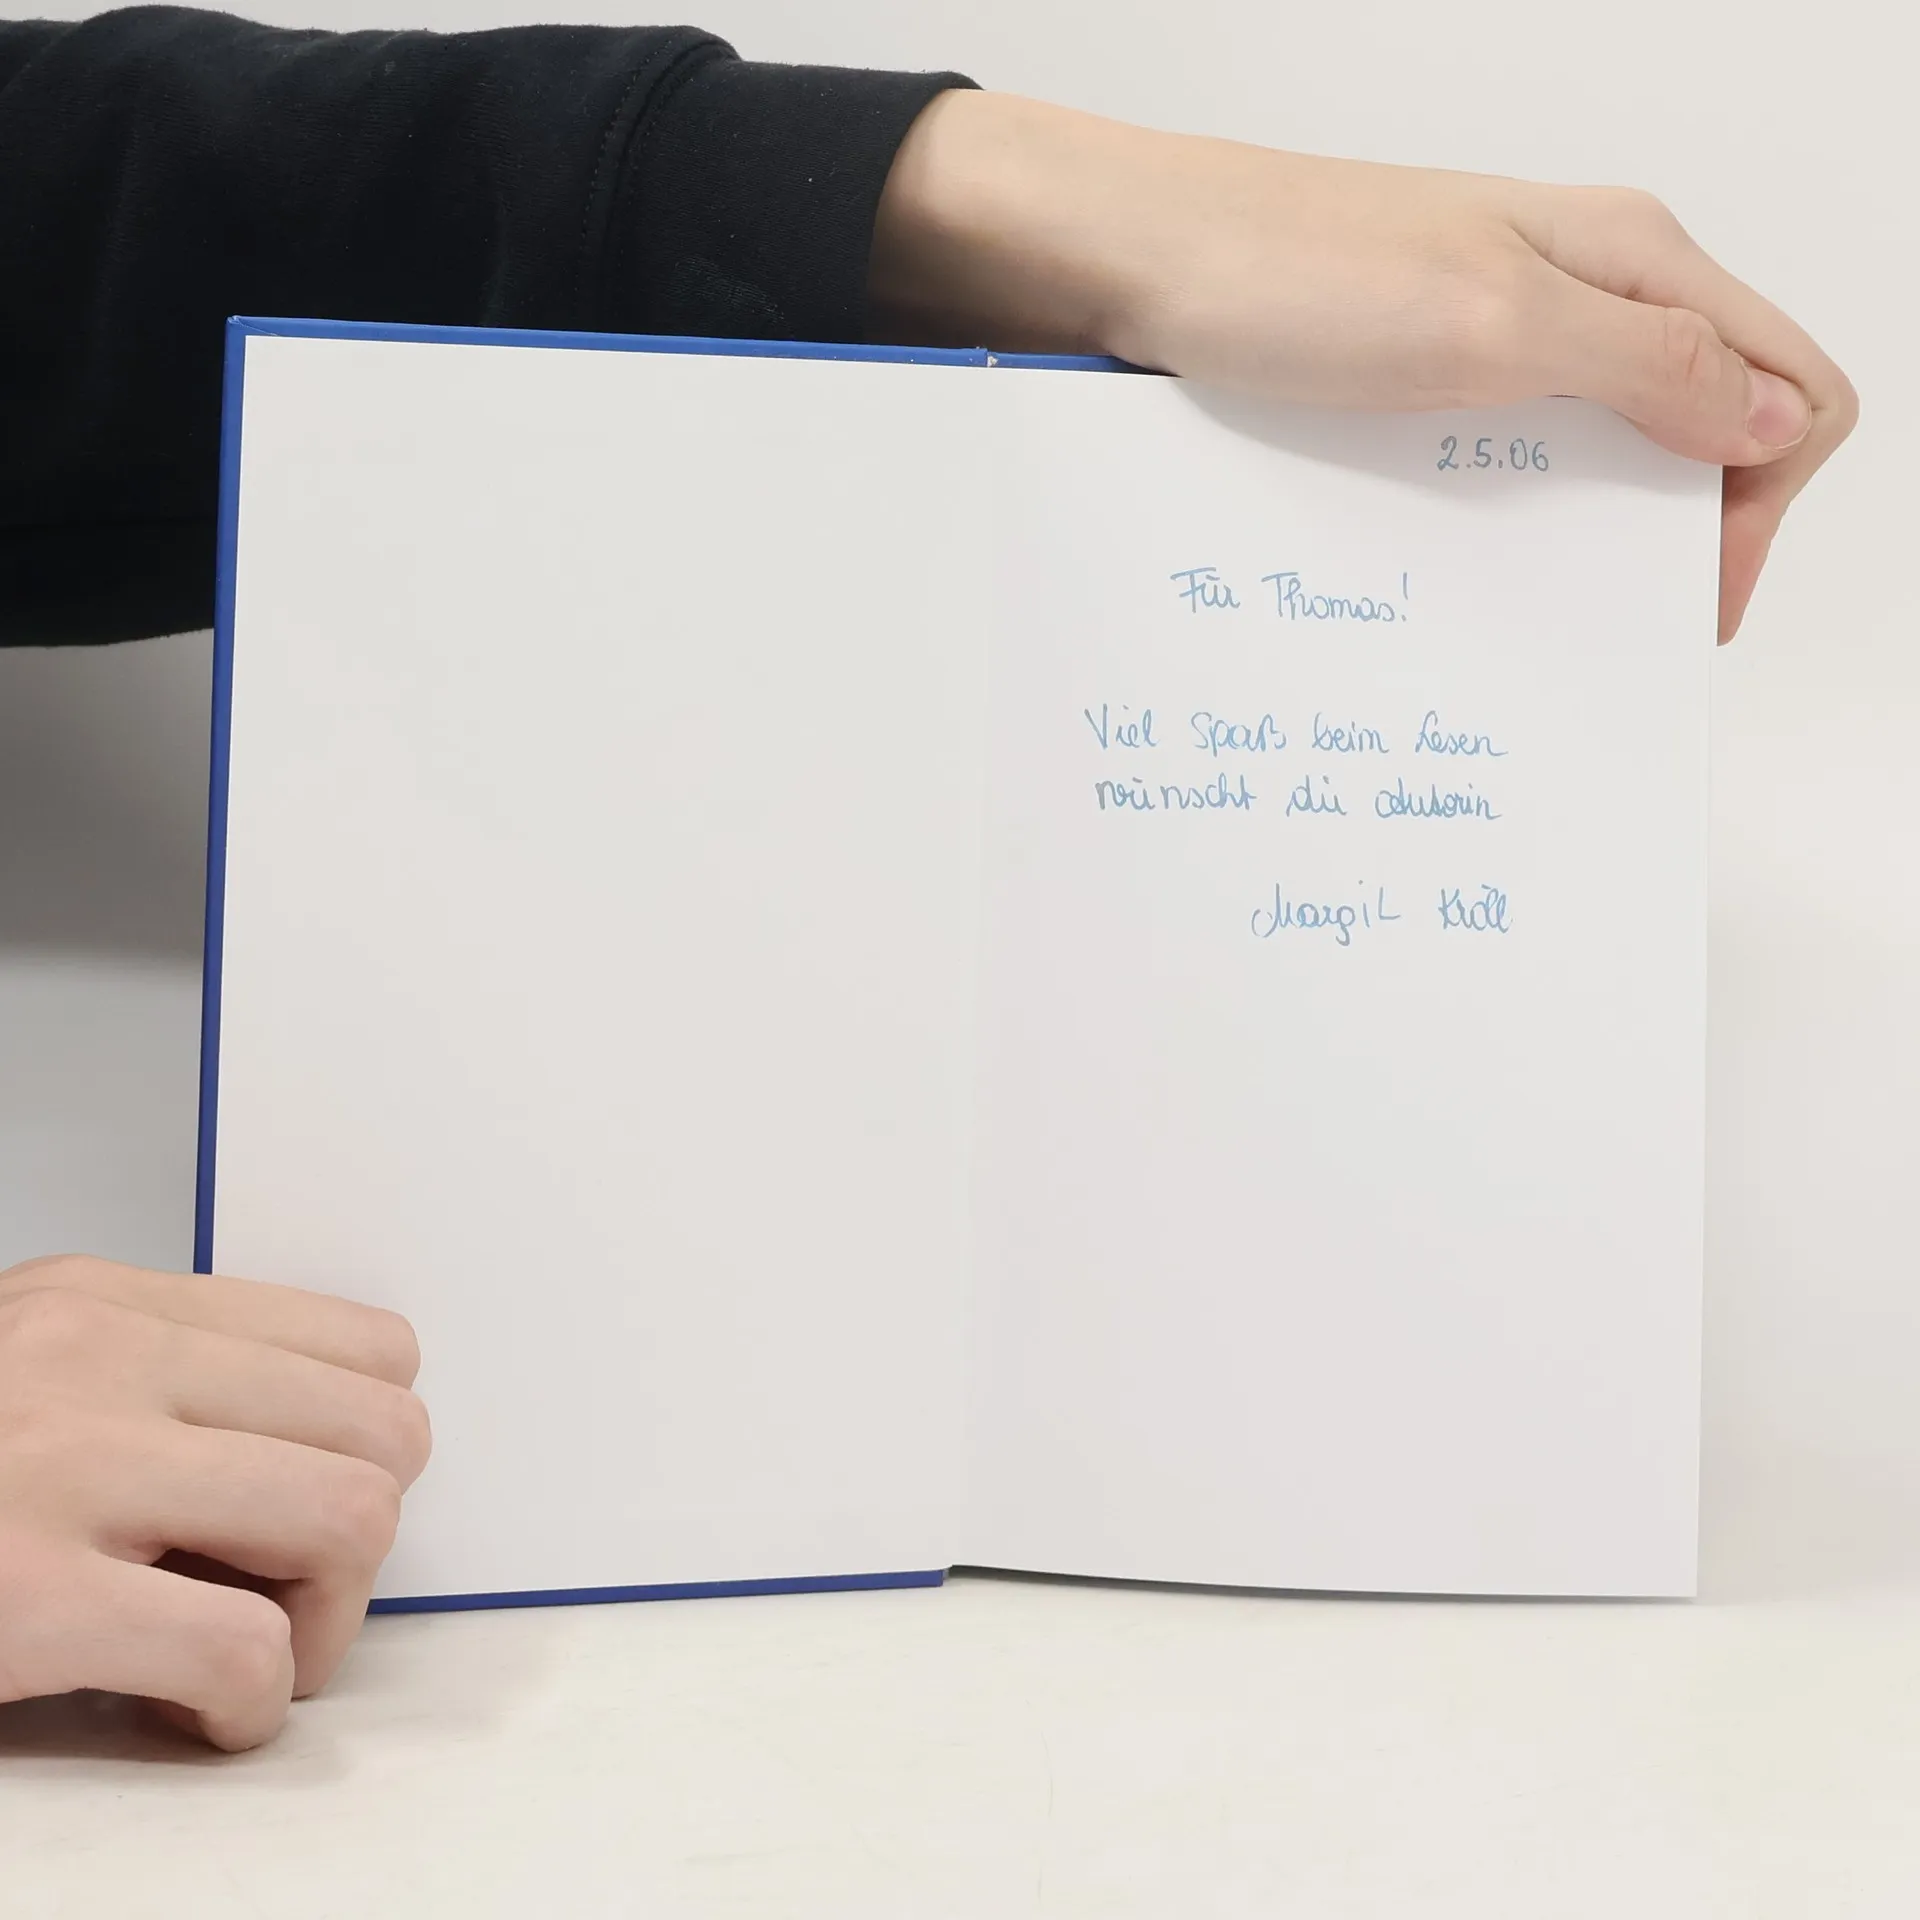 2.5.06
Für Thomas!
Viel Spaß beim Lesen
wünscht die Autorin
Margit Kröll